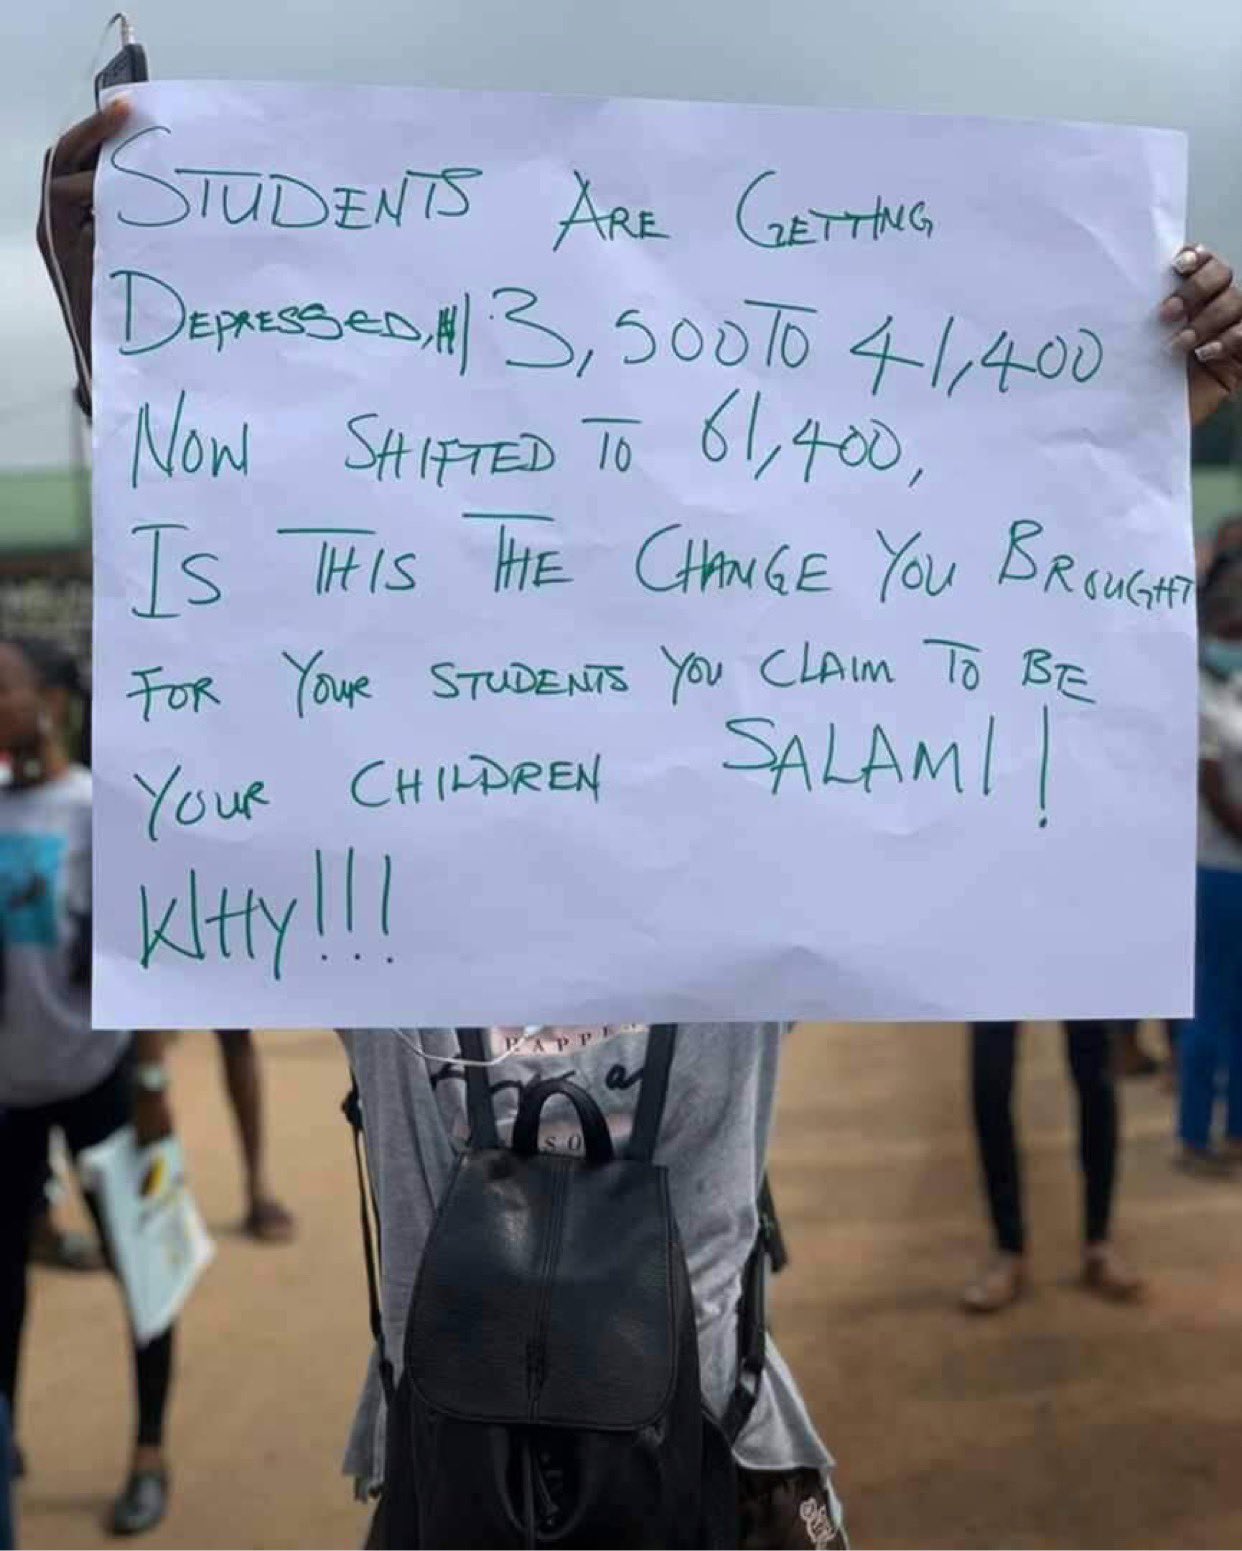 STUDENTS ARE GETTING
DEPRESSED, ₦13,500 TO 41,400
NOW SHIFTED TO 61,400,
IS THIS THE CHANGE YOU BROUGHT
FOR YOUR STUDENTS YOU CLAIM TO BE
YOUR CHILDREN SALAMI!
WHY!!!
a
SO